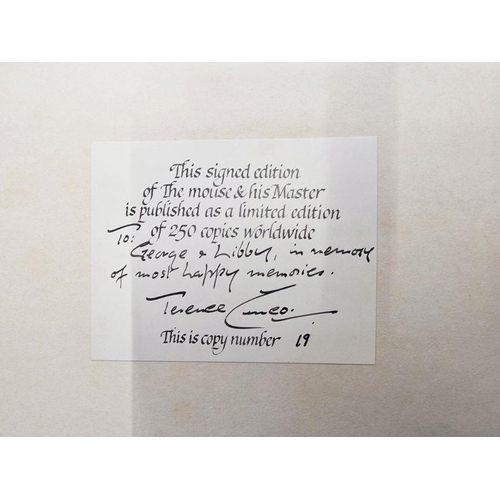 This signed edition
of The mouse & his Master
is published as a limited edition
of 250 copies worldwide
To:
George & Libby, in memory
of most happy memories.
Terence Cuneo.
This is copy number 19